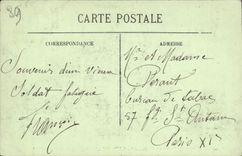 89
CARTE POSTALE
CORRESPONDANCE
ADRESSE
Souvenir d'un vieux
Soldat fatigué
Mr et Madame
Peraut
bureau de tabac
57 fg St Antoine
Paris XIe